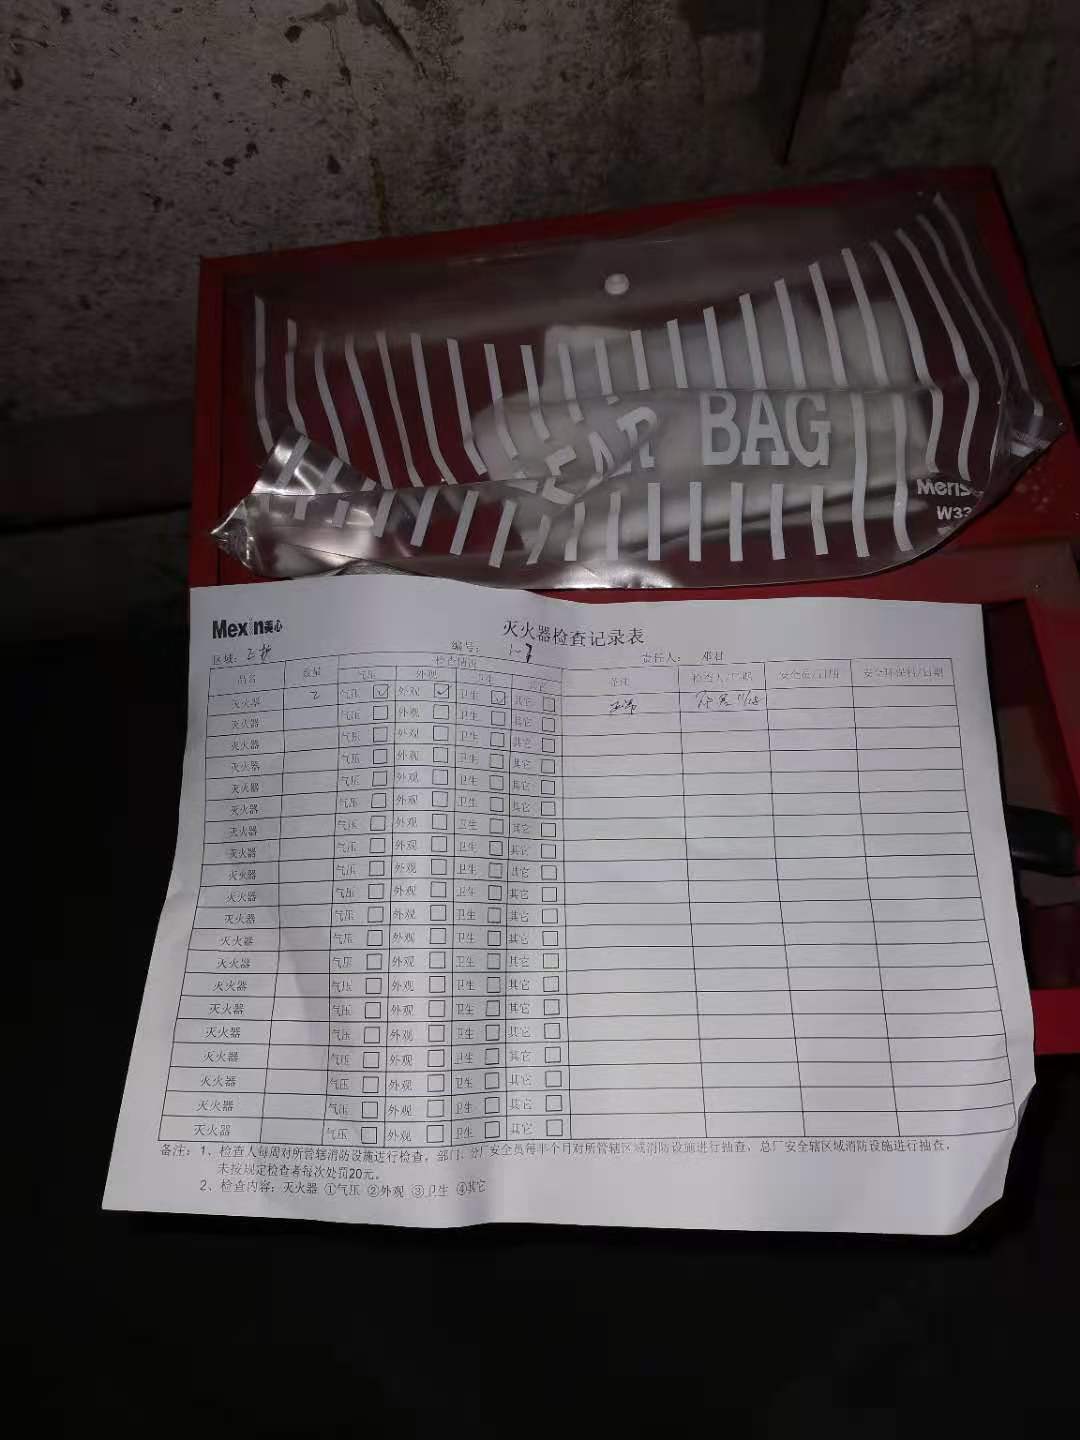 BAG
W33
Mexin美心
灭火器检查记录表
区域： 编号： 责任人： 邓日
品名 数量 检查情况 备注 检查人/日期 安全员/日期 安全环保科/日期
气压 外观 卫生 其它
灭火器 2 气压 ☑ 外观 ☑ 卫生 ☑ 其它 □ 正常
灭火器 气压 □ 外观 □ 卫生 □ 其它 □
灭火器 气压 □ 外观 □ 卫生 □ 其它 □
灭火器 气压 □ 外观 □ 卫生 □ 其它 □
灭火器 气压 □ 外观 □ 卫生 □ 其它 □
灭火器 气压 □ 外观 □ 卫生 □ 其它 □
灭火器 气压 □ 外观 □ 卫生 □ 其它 □
灭火器 气压 □ 外观 □ 卫生 □ 其它 □
灭火器 气压 □ 外观 □ 卫生 □ 其它 □
灭火器 气压 □ 外观 □ 卫生 □ 其它 □
灭火器 气压 □ 外观 □ 卫生 □ 其它 □
灭火器 气压 □ 外观 □ 卫生 □ 其它 □
灭火器 气压 □ 外观 □ 卫生 □ 其它 □
灭火器 气压 □ 外观 □ 卫生 □ 其它 □
灭火器 气压 □ 外观 □ 卫生 □ 其它 □
灭火器 气压 □ 外观 □ 卫生 □ 其它 □
灭火器 气压 □ 外观 □ 卫生 □ 其它 □
灭火器 气压 □ 外观 □ 卫生 □ 其它 □
灭火器 气压 □ 外观 □ 卫生 □ 其它 □
灭火器 气压 □ 外观 □ 卫生 □ 其它 □
备注：1、检查人每周对所管辖消防设施进行检查，部门、分厂安全员每半个月对所管辖区域消防设施进行抽查，总厂安全辖区域消防设施进行抽查，
未按规定检查者每次处罚20元。
2、检查内容：灭火器 ①气压 ②外观 ③卫生 ④其它